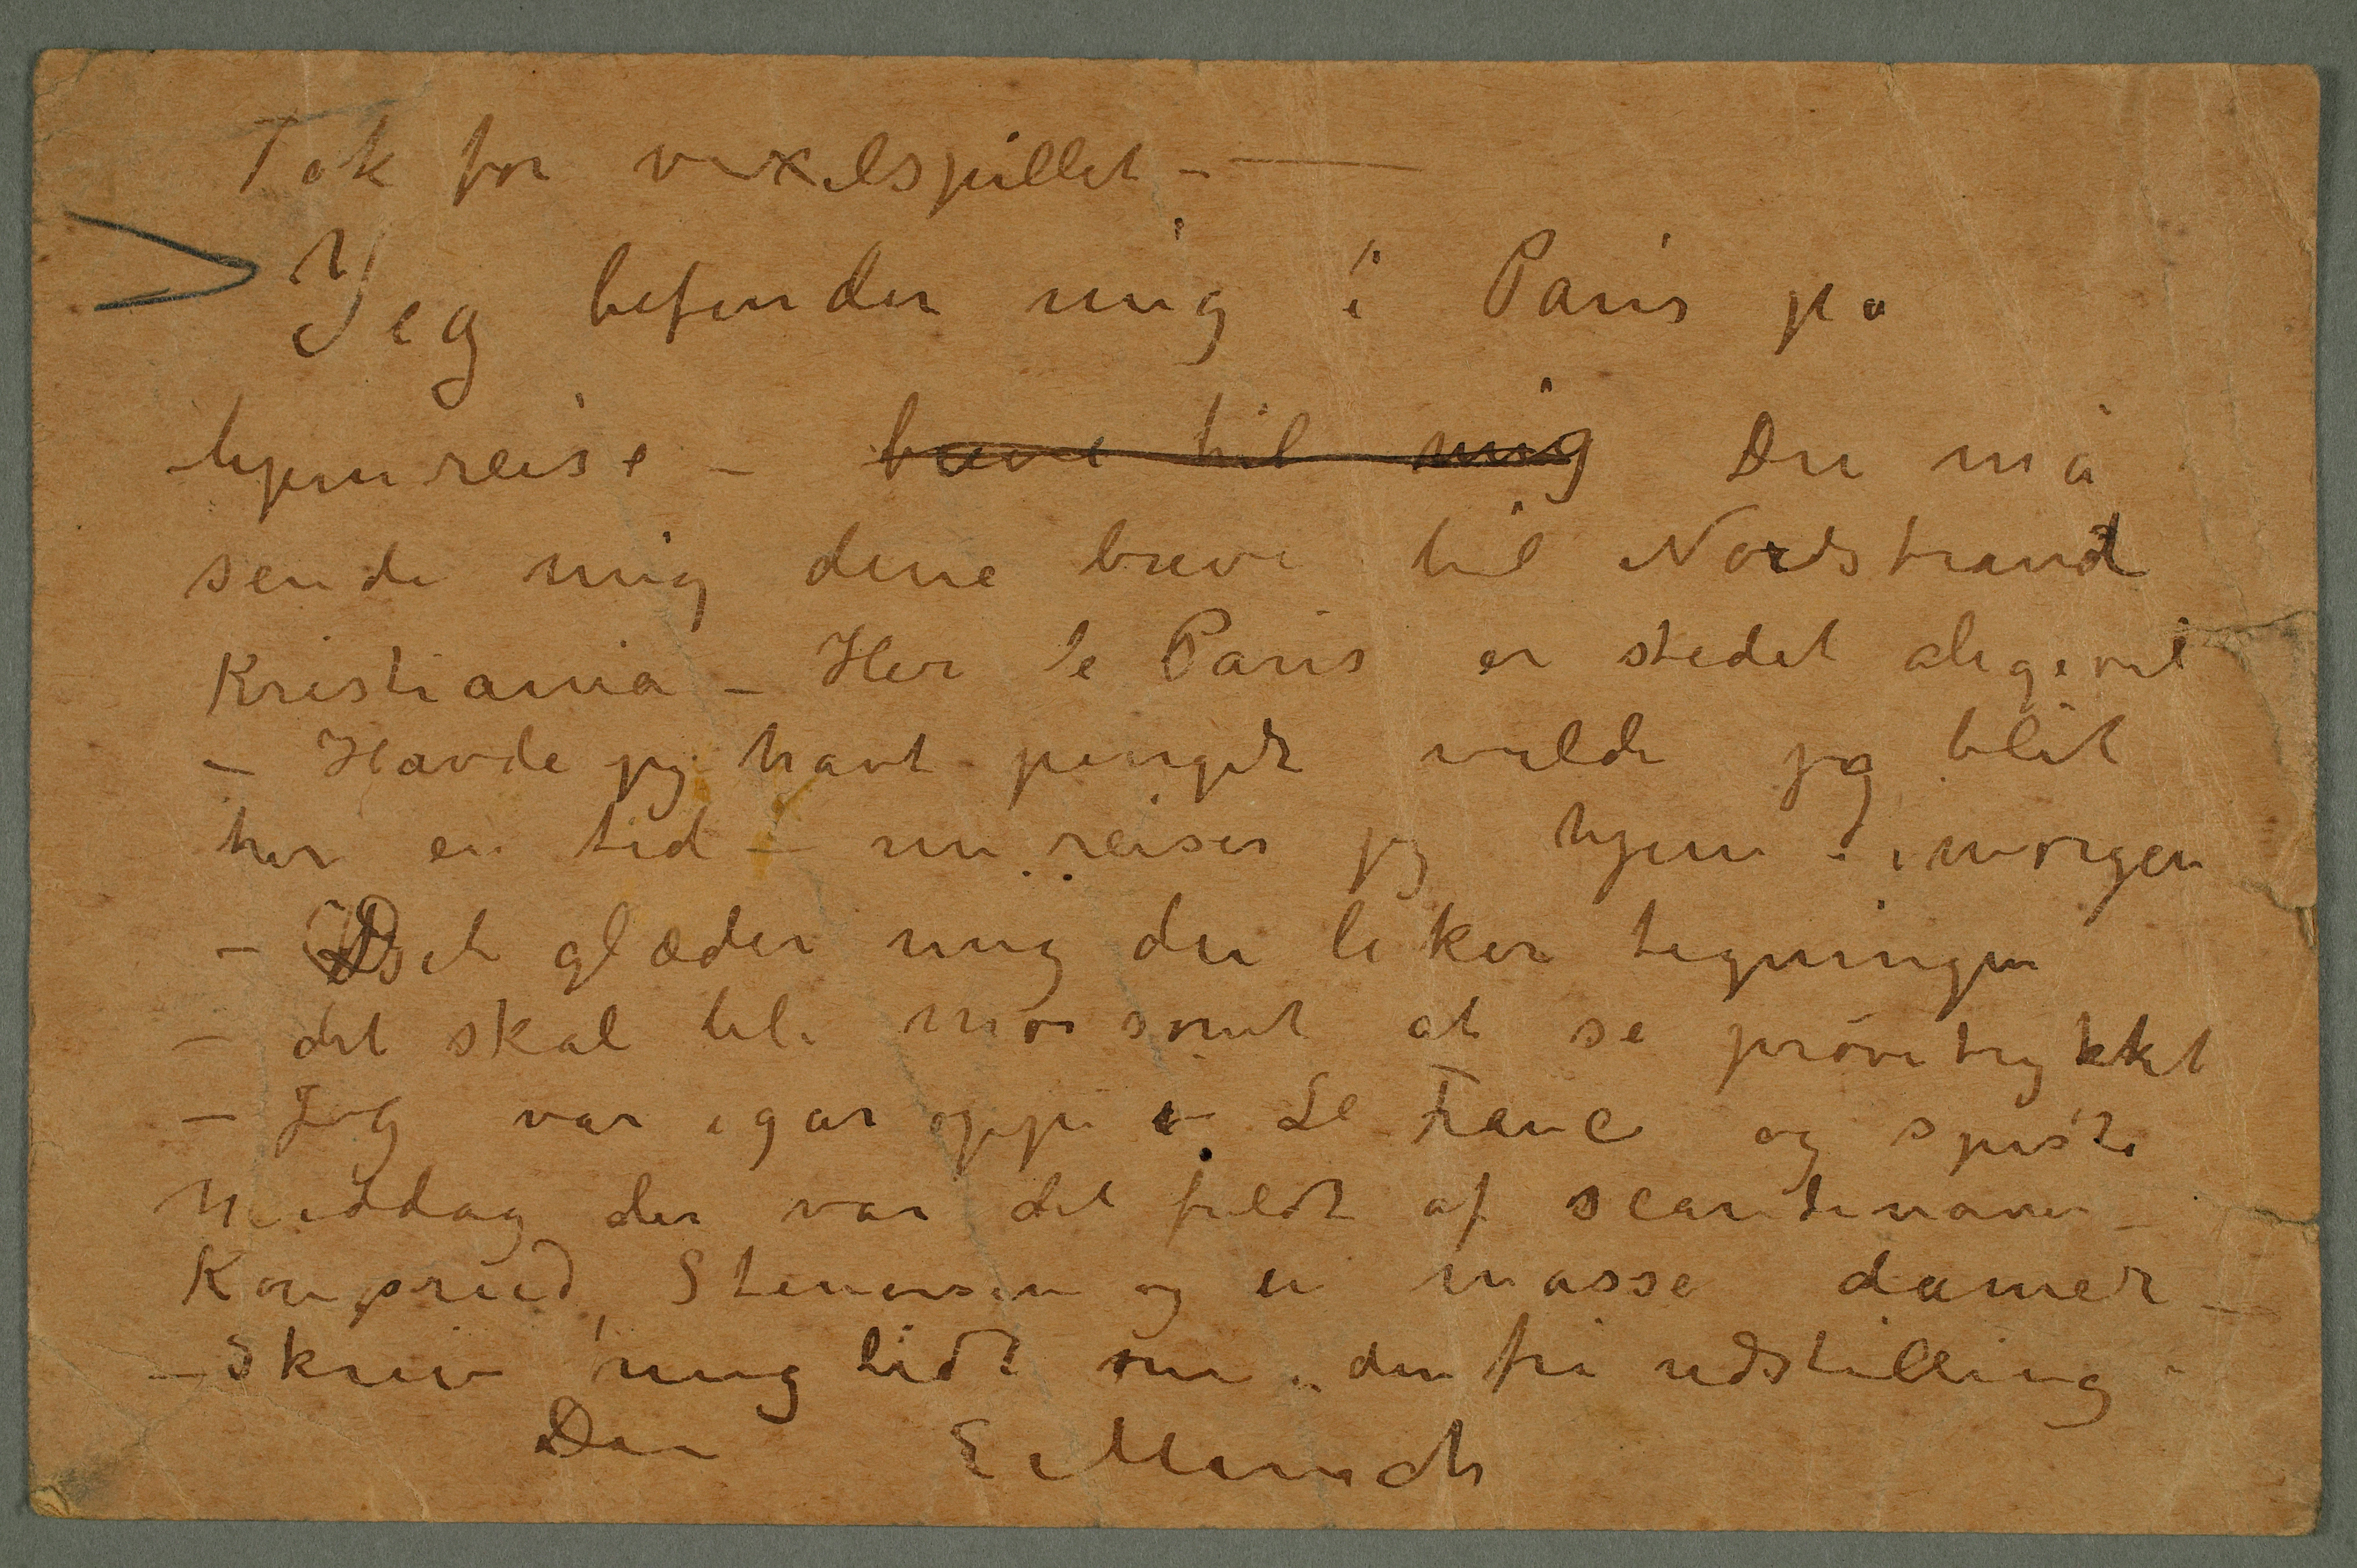 Tak for vexelspillet – —
Jeg befinder mig i Paris på
hjemreise – breve til mig Du må
sende mig dine breve til Nordstrand
Kristiania – Her i Paris er stedet aligevel
– Havde jeg havt penger vilde jeg blit
her en tid – nu reiser jeg hjem imorgen
– Det glæder mig du liker tegningen
– det skal bli morsomt at se prøvetrykket
– Jeg var igår oppe i Le Franc og spiste
Middag der var det fuldt af scandinaver –
Stenersen og en masse damer –
– Skriv mig lidt om den fri udstilling
Din E Munch